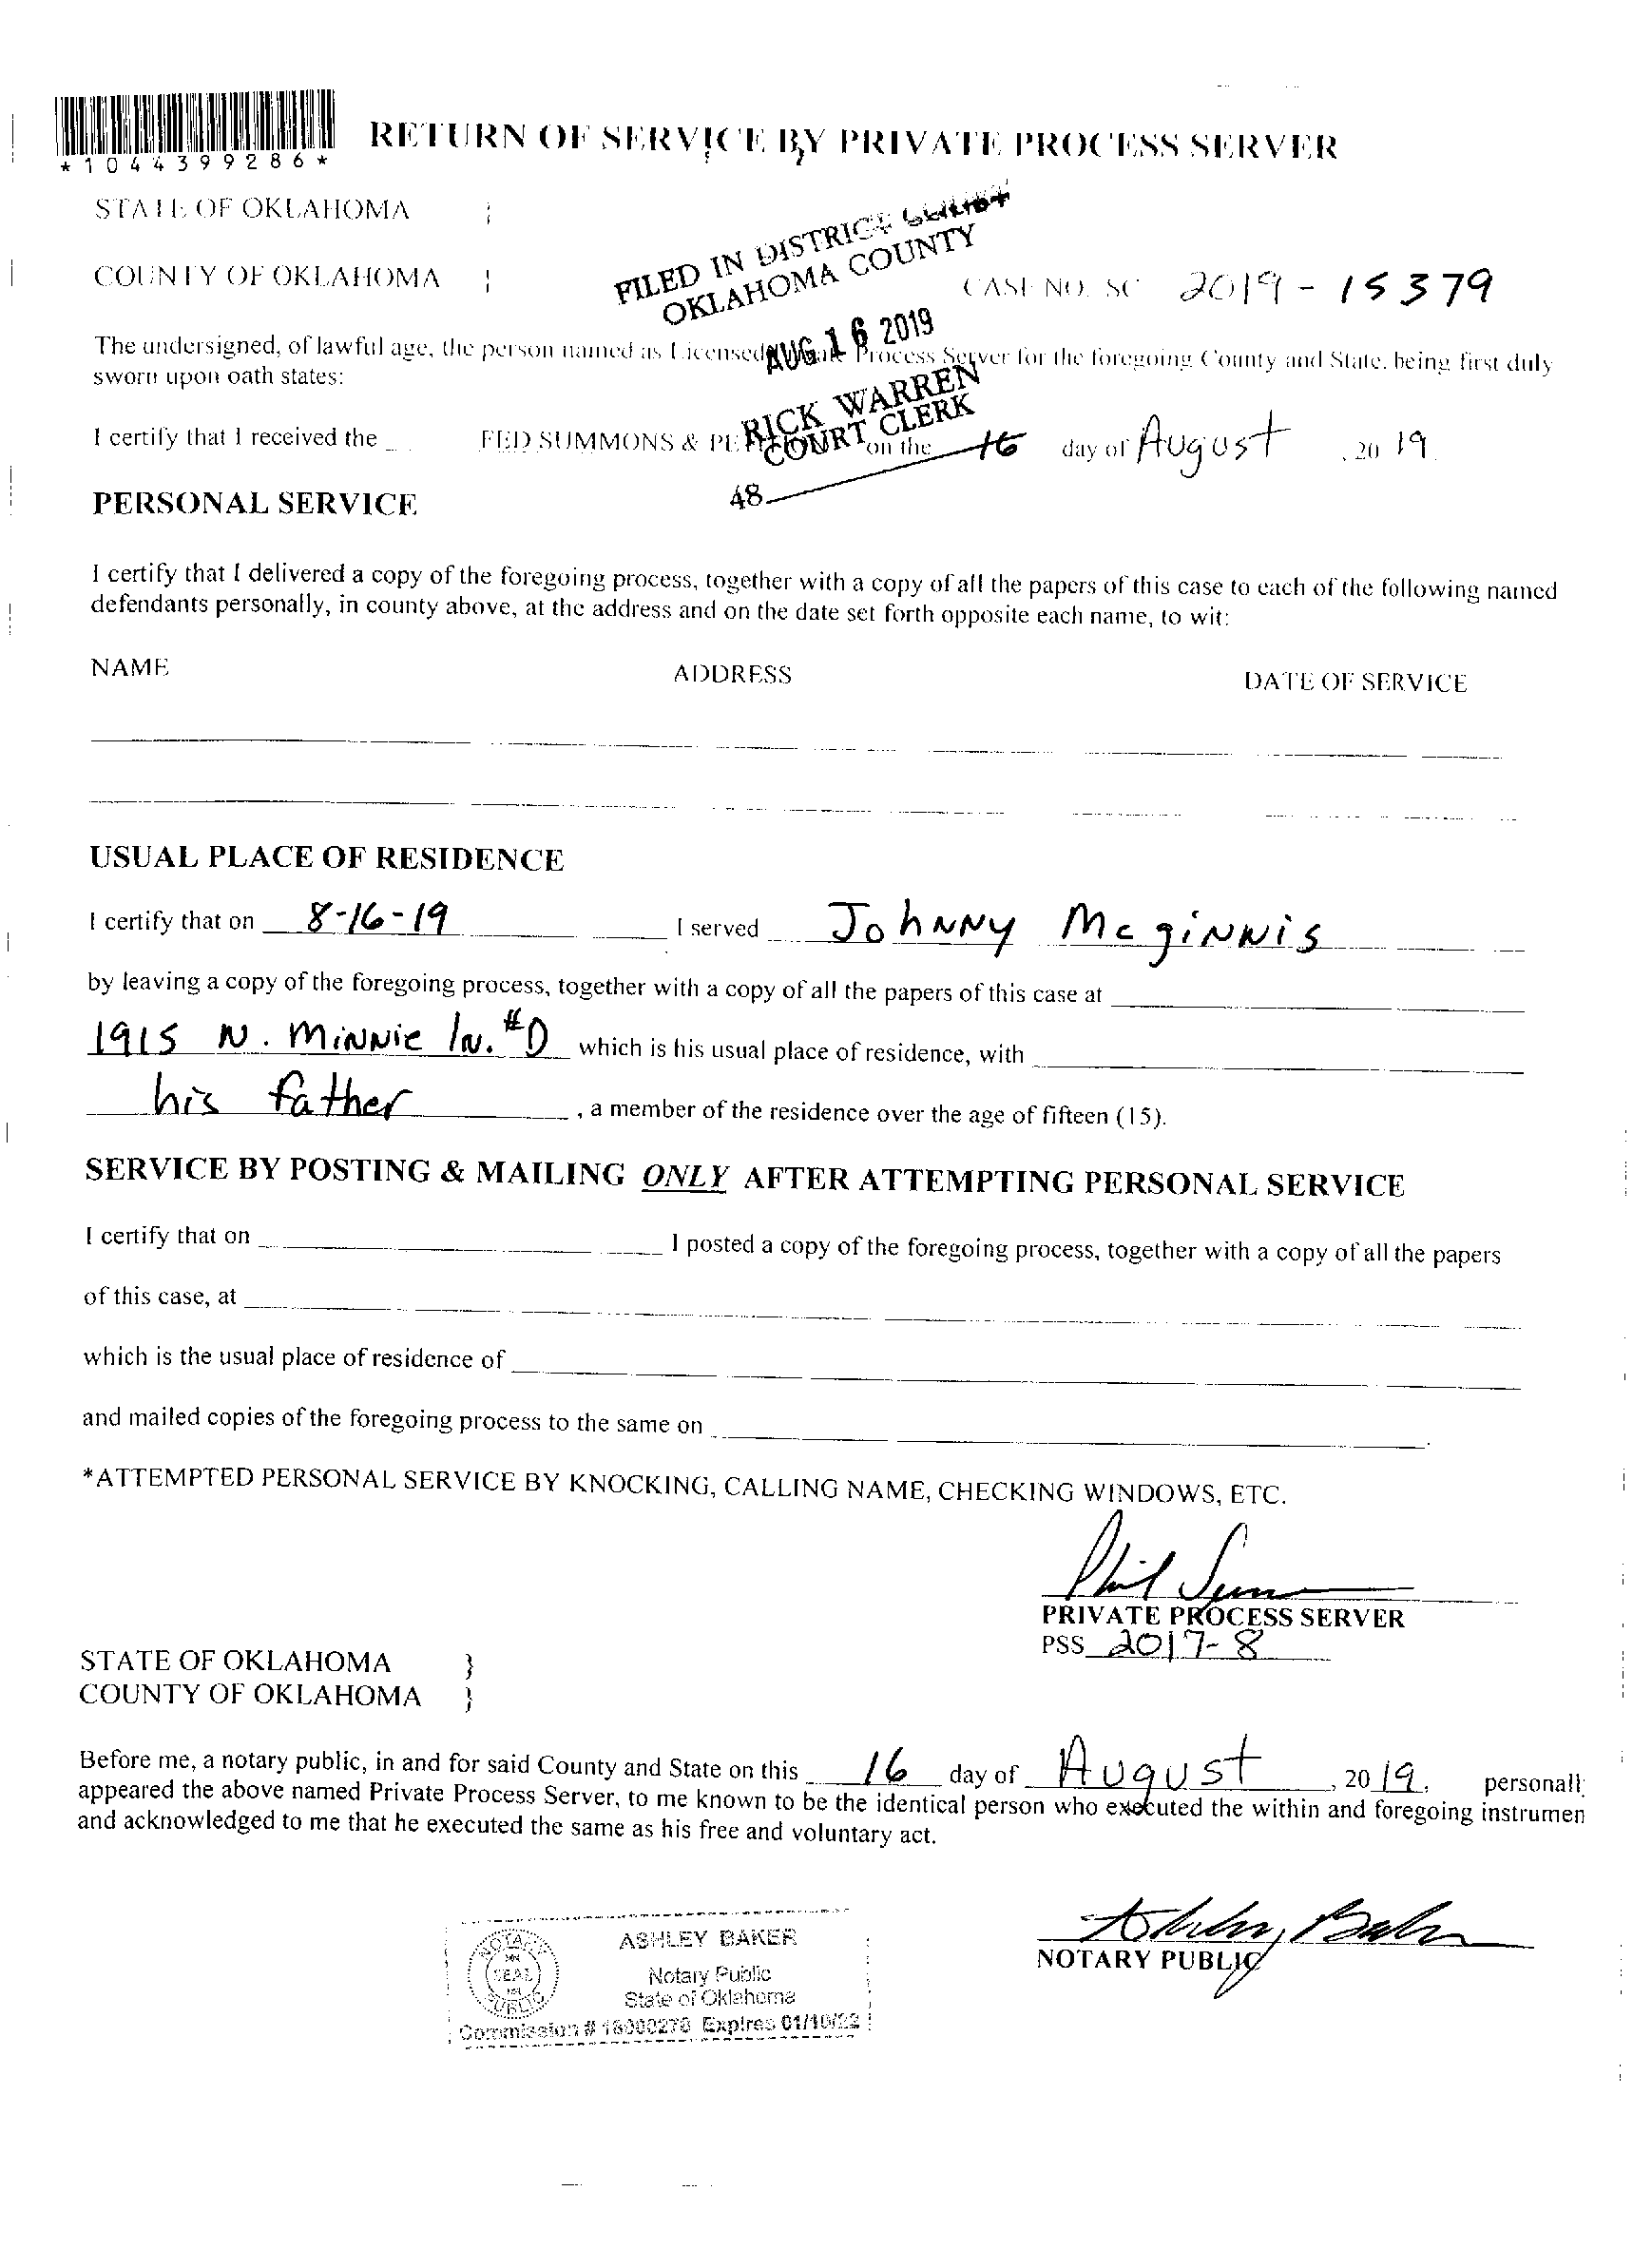 *1044399286*
RETURN OF SERVICE BY PRIVATE PROCESS SERVER
STATE OF OKLAHOMA }
FILED IN DISTRICT COURT
OKLAHOMA COUNTY
COUNTY OF OKLAHOMA } CASE NO. SC 2019-15379
AUG 16 2019
The undersigned, of lawful age, the person named as Licensed Process Server for the foregoing County and State, being first duly
sworn upon oath states:
RICK WARREN
COURT CLERK
I certify that I received the FED SUMMONS & PE on the 16 day of August, 2019.
48
PERSONAL SERVICE
I certify that I delivered a copy of the foregoing process, together with a copy of all the papers of this case to each of the following named
defendants personally, in county above, at the address and on the date set forth opposite each name, to wit:
NAME ADDRESS DATE OF SERVICE
USUAL PLACE OF RESIDENCE
I certify that on 8-16-19 I served Johnny Mcginnis
by leaving a copy of the foregoing process, together with a copy of all the papers of this case at
1915 N. Minnie ln. #D which is his usual place of residence, with
his father, a member of the residence over the age of fifteen (15).
SERVICE BY POSTING & MAILING ONLY AFTER ATTEMPTING PERSONAL SERVICE
I certify that on I posted a copy of the foregoing process, together with a copy of all the papers
of this case, at
which is the usual place of residence of
and mailed copies of the foregoing process to the same on .
*ATTEMPTED PERSONAL SERVICE BY KNOCKING, CALLING NAME, CHECKING WINDOWS, ETC.
Phil
PRIVATE PROCESS SERVER
PSS 2017-8
STATE OF OKLAHOMA }
COUNTY OF OKLAHOMA }
Before me, a notary public, in and for said County and State on this 16 day of August, 2019, personall
appeared the above named Private Process Server, to me known to be the identical person who executed the within and foregoing instrumen
and acknowledged to me that he executed the same as his free and voluntary act.
Ashley Baker
NOTARY PUBLIC
NOTARY
SEAL
PUBLIC
ASHLEY BAKER
Notary Public
State of Oklahoma
Commission # 18000278 Expires 01/10/22